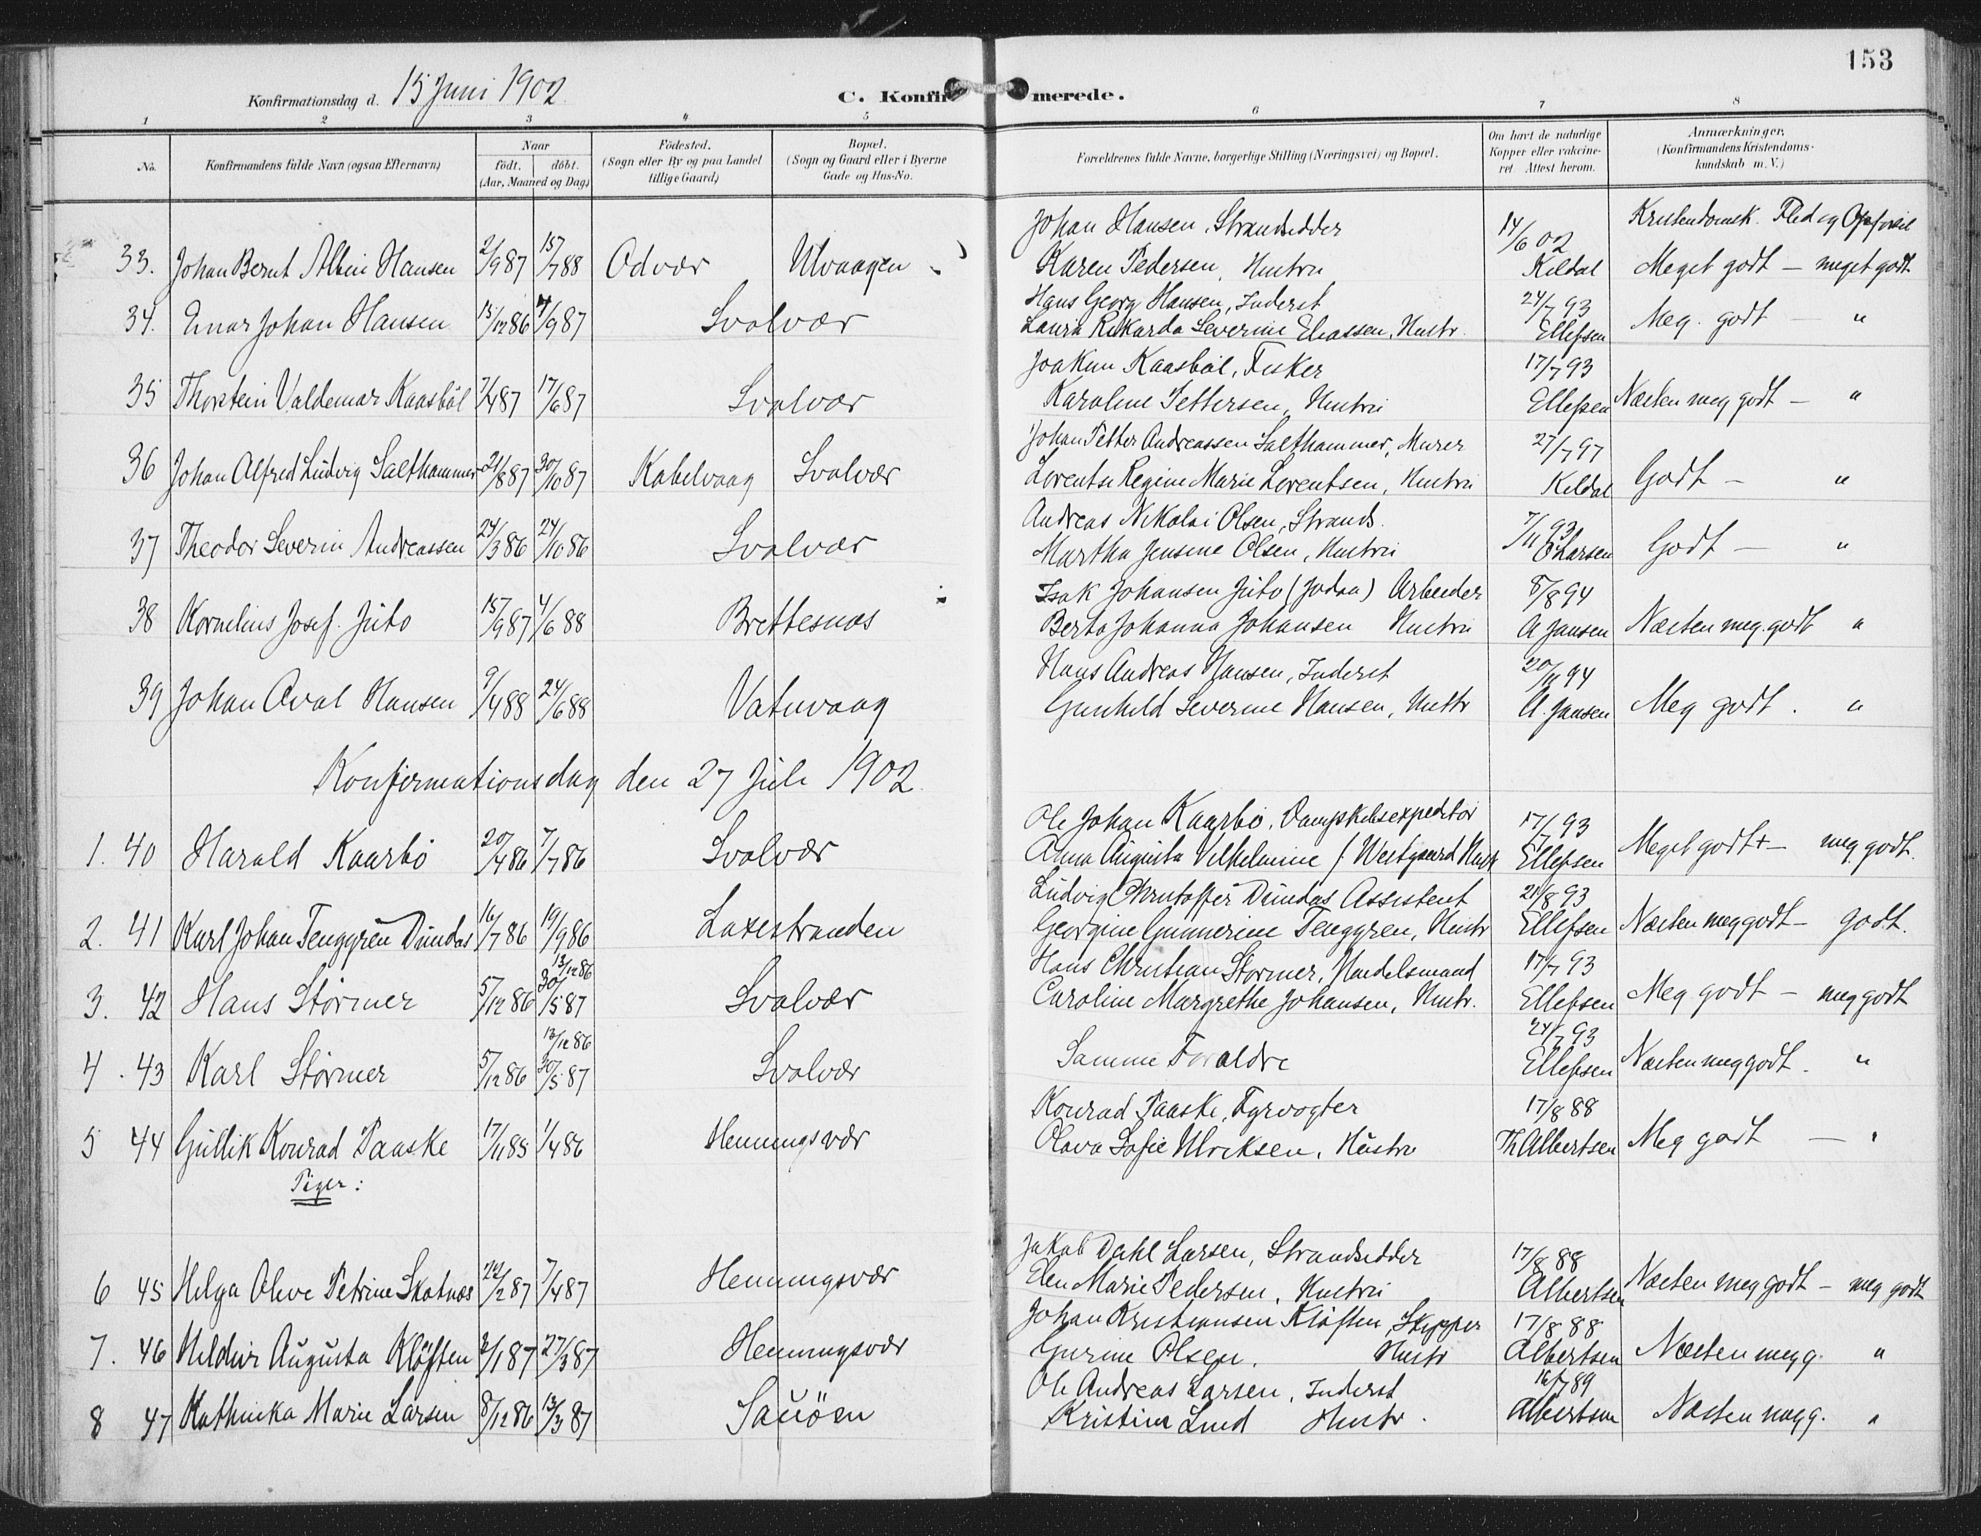 153
Konfirmationsdag d. 15 Juni 1902. C. Konfirmerede.
1 2 3 4 5 6 7 8
No. Konfirmandens fulde Navn (ogsaa Efternavn) Naar födt. döbt. (Aar, Maaned og Dag) Födested. (Sogn eller By og paa Landet tillige Gaard) Bopæl. (Sogn og Gaard eller i Byerne Gade og Hus-No. Forældrenes fulde Navne, borgerlige Stilling (Næringsvei) og Bopæl. Om havt de naturlige Kopper eller vakcineret Attest herom. Anmærkninger, (Konfirmandens Kristendomskundskab m. V.)
Johan Hansen, Strandsidder 14/6 02 Kristendomsk. Flid og Opførsel
33. Johan Bernt Albin Hansen 2/9 87 15/7 88 Odvær Ulvaagen Karen Pedersen, Hustru Kildal Meget godt — meget godt
Hans Georg Hansen, Inderst 24/7 93
34. Einar Johan Hansen 15/12 86 4/9 87 Svolvær Laura Rikarda Severine Eliassen, Hustr. Ellefsen Meg. godt — "
Joakim Kaasböl, Fisker 17/7 93
35 Thorstein Valdemar Kaasböl 7/4 87 17/6 87 Svolvær Karoline Pettersen, Hustru Ellefsen Næsten meg godt — "
Johan Petter Andreassen Salthammer, Murer 27/7 97
36 Johan Alfred Ludvig Salthammer 21/8 87 30/10 87 Kabelvaag Svolvær Lorentse Regine Marie Lorentsen, Hustru Kildal Godt — "
Andreas Nikolai Olsen, Strands. 7/11 93
37 Theodor Severin Andreassen 24/3 86 24/10 86 Svolvær Martha Jensine Olsen, Hustru Larsen Godt — "
Isak Johansen Juto (Jodaa) Arbeider 8/8 94
38 Kornelius Josef. Juto 15/9 87 4/6 88 Brettesnæs Berta Johanna Johansen Hustru A Jansen Næsten meg. godt "
Hans Andreas Hansen, Inderst 20/11 94
39 Johan Aval Hansen 9/4 88 24/6 88 Vatnvaag Gunhild Severine Hansen, Hustr A. Jansen Meg godt. "
Konfirmationsdag den 27 Juli 1902.
Ole Johan Kaarbø, Dampskibsexpeditør 17/7 93
1. 40 Harald Kaarbø 20/4 86 7/7 86 Svolvær Anna Augusta Vilhelmine f. Westgaard Hustr Ellefsen Meget godt + — meg godt.
Ludvig Christoffer Dundas Assistent 21/8 93
2. 41 Karl Johan Tenggren Dundas 16/7 86 19/9 86 Laxestranden Georgine Gunnerine Tenggren, Hustr Ellefsen Næsten meg godt — godt.
13/12 86 Hans Christian Størmer, Handelsmand 17/7 93
3. 42 Hans Størmer 5/12 86 30/5 87 Svolvær Caroline Margrethe Johansen, Hustr. Ellefsen Meg godt — meg godt
13/12 86 24/7 93
4. 43 Karl Størmer 5/12 86 30/5 87 Svolvær Samme Forældre Ellefsen Næsten meg godt. "
Konrad Paaske, Fyrvogter 17/8 88
5 44 Gullik Konrad Paaske 17/11 85 1/4 86 Henningsvær Olava Sofie Ulriksen, Hustru Th Albertsen Meg godt — "
Piger:
Jakob Dahl Larsen, Strandsidder 17/8 88
6 45 Helga Olive Petrine Skotnæs 24/2 87 7/4 87 Henningsvær Elen Marie Pedersen, Hustru Albertsen Næsten meg godt — meg godt
Johan Kristiansen Kløften, Skipper 17/8 88
7. 46 Hildur Augusta Kløften 2/1 87 27/3 87 Henningsvær Gurine Olsen, Hustr Albertsen Næsten meg g. "
Ole Andreas Larsen, Inderst 16/7 89
8 47 Kathinka Marie Larsen 8/12 86 13/3 87 Sauöen Kristine Lind Hustr. Albertsen Næsten meg g. "